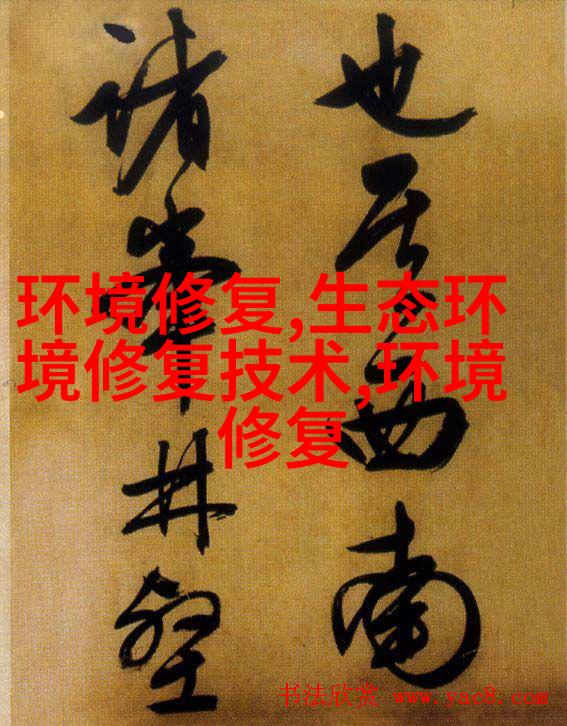 也其西南
諸峯林壑
环境修复,生态环
境修复技术,环境
修复
书法欣赏 www.yac8.com